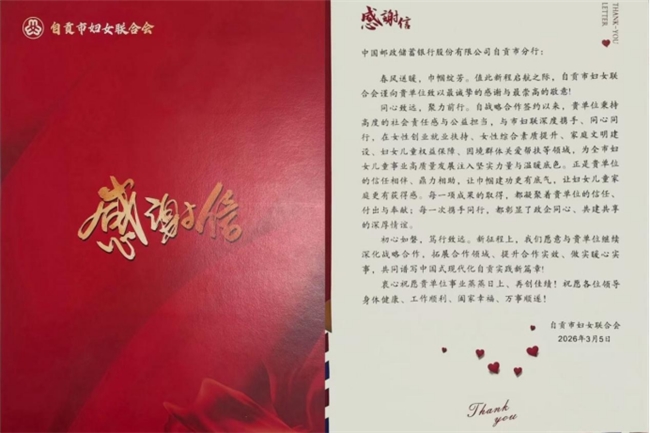 自贡市妇女联合会
感谢信
感谢信
THANK-YOU
LETTER
中国邮政储蓄银行股份有限公司自贡市分行：
春风送暖，巾帼绽芳。值此新程启航之际，自贡市妇女联
合会谨向贵单位致以最诚挚的感谢与最崇高的敬意！
同心致远，聚力前行。自战略合作签约以来，贵单位秉持
高度的社会责任感与公益担当，与市妇联深度携手、同心同
行，在女性创业就业扶持、女性综合素质提升、家庭文明建
设、妇女儿童权益保障、困境群体关爱帮扶等领域，为全市妇
女儿童事业高质量发展注入坚实力量与温暖底色。正是贵单位
的信任相伴、鼎力相助，让巾帼建功更有底气，让妇女儿童家
庭更有获得感。每一项成果的取得，都凝聚着贵单位的信任、
付出与奉献；每一次携手同行，都彰显了政企同心、共建共享
的深厚情谊。
初心如磐，笃行致远。新征程上，我们愿意与贵单位继续
深化战略合作，拓展合作领域、提升合作实效、做实暖心实
事，共同谱写中国式现代化自贡实践新篇章！
衷心祝愿贵单位事业蒸蒸日上、再创佳绩！祝愿各位领导
身体健康、工作顺利、阖家幸福、万事顺遂！
自贡市妇女联合会
2026年3月5日
Thank
you